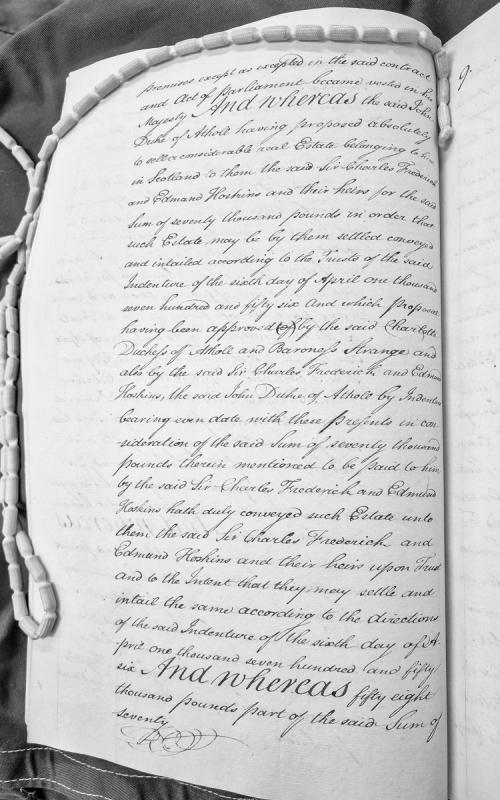 premises except as excepted in the said contract
and Act of Parliament became vested in his
Majesty And whereas the said John
Duke of Atholl having proposed absolutely
to sell a considerable real Estate belonging to him
in Scotland to them the said Sir Charles Frederick
and Edmund Hoskins and their heirs for the said
Sum of seventy thousand pounds in order that
such Estate may be by them settled conveyed
and intailed according to the Trusts of the said
Indenture of the sixth day of April one thousand
seven hundred and fifty six And which proposal
having been approved of by the said Charlotte
Duchess of Atholl and Baroness Strange and
also by the said Sir Charles Frederick and Edmund
Hoskins, the said John Duke of Atholl by Indenture
bearing even date with these presents in con-
sideration of the said Sum of seventy thousand
pounds therein mentioned to be paid to him
by the said Sir Charles Frederick and Edmund
Hoskins hath duly conveyed such Estate unto
them the said Sir Charles Frederick and
Edmund Hoskins and their heirs upon Trust
and to the Intent that they may settle and
intail the same according to the directions
of the said Indenture of the sixth day of A-
pril one thousand seven hundred and fifty
six And whereas fifty eight
thousand pounds part of the said Sum of
seventy
9.